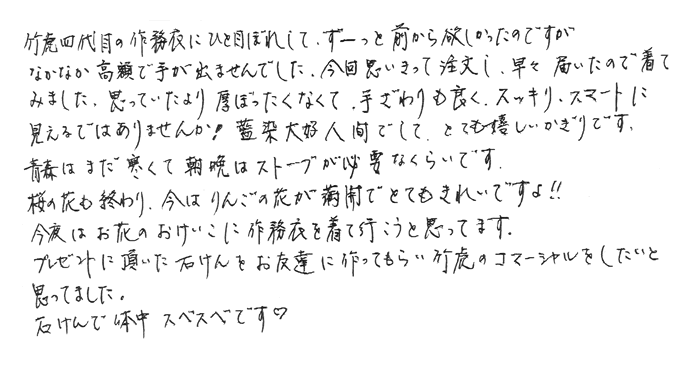 竹虎四代目の作務衣にひと目ぼれして、ずーっと前から欲しかったのですが
なかなか高額で手が出ませんでした、今回思いきって注文し、早々届いたので着て
みました、思っていたより厚ぼったくなくて、手ざわりも良く、スッキリ、スマートに
見えるではありませんか!藍染大好人間でして、とても嬉しいかぎりです、
青森はまだ寒くて朝晩はストーブが必要なくらいです、
桜の花も終わり、今はりんごの花が満開でとてもきれいですよ!!
今夜はお花のおけいこに作務衣を着て行こうと思ってます。
プレゼントに頂いた石けんをお友達に作ってもらい竹虎のコマーシャルをしたいと
思ってました。
石けんで体中スベスベです♡